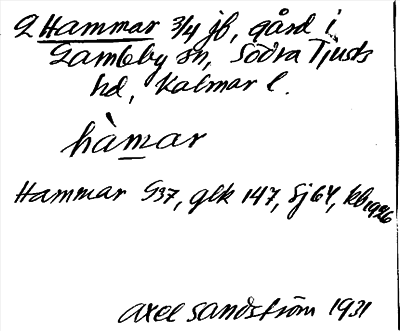 2 Hammar 3/4 jb, gård i
Gamleby sn, Södra Tjusts
hd, Kalmar l.
hàmar
Hammar S37, glk 147, Sj64, kb 1926
Axel Sandström 1931